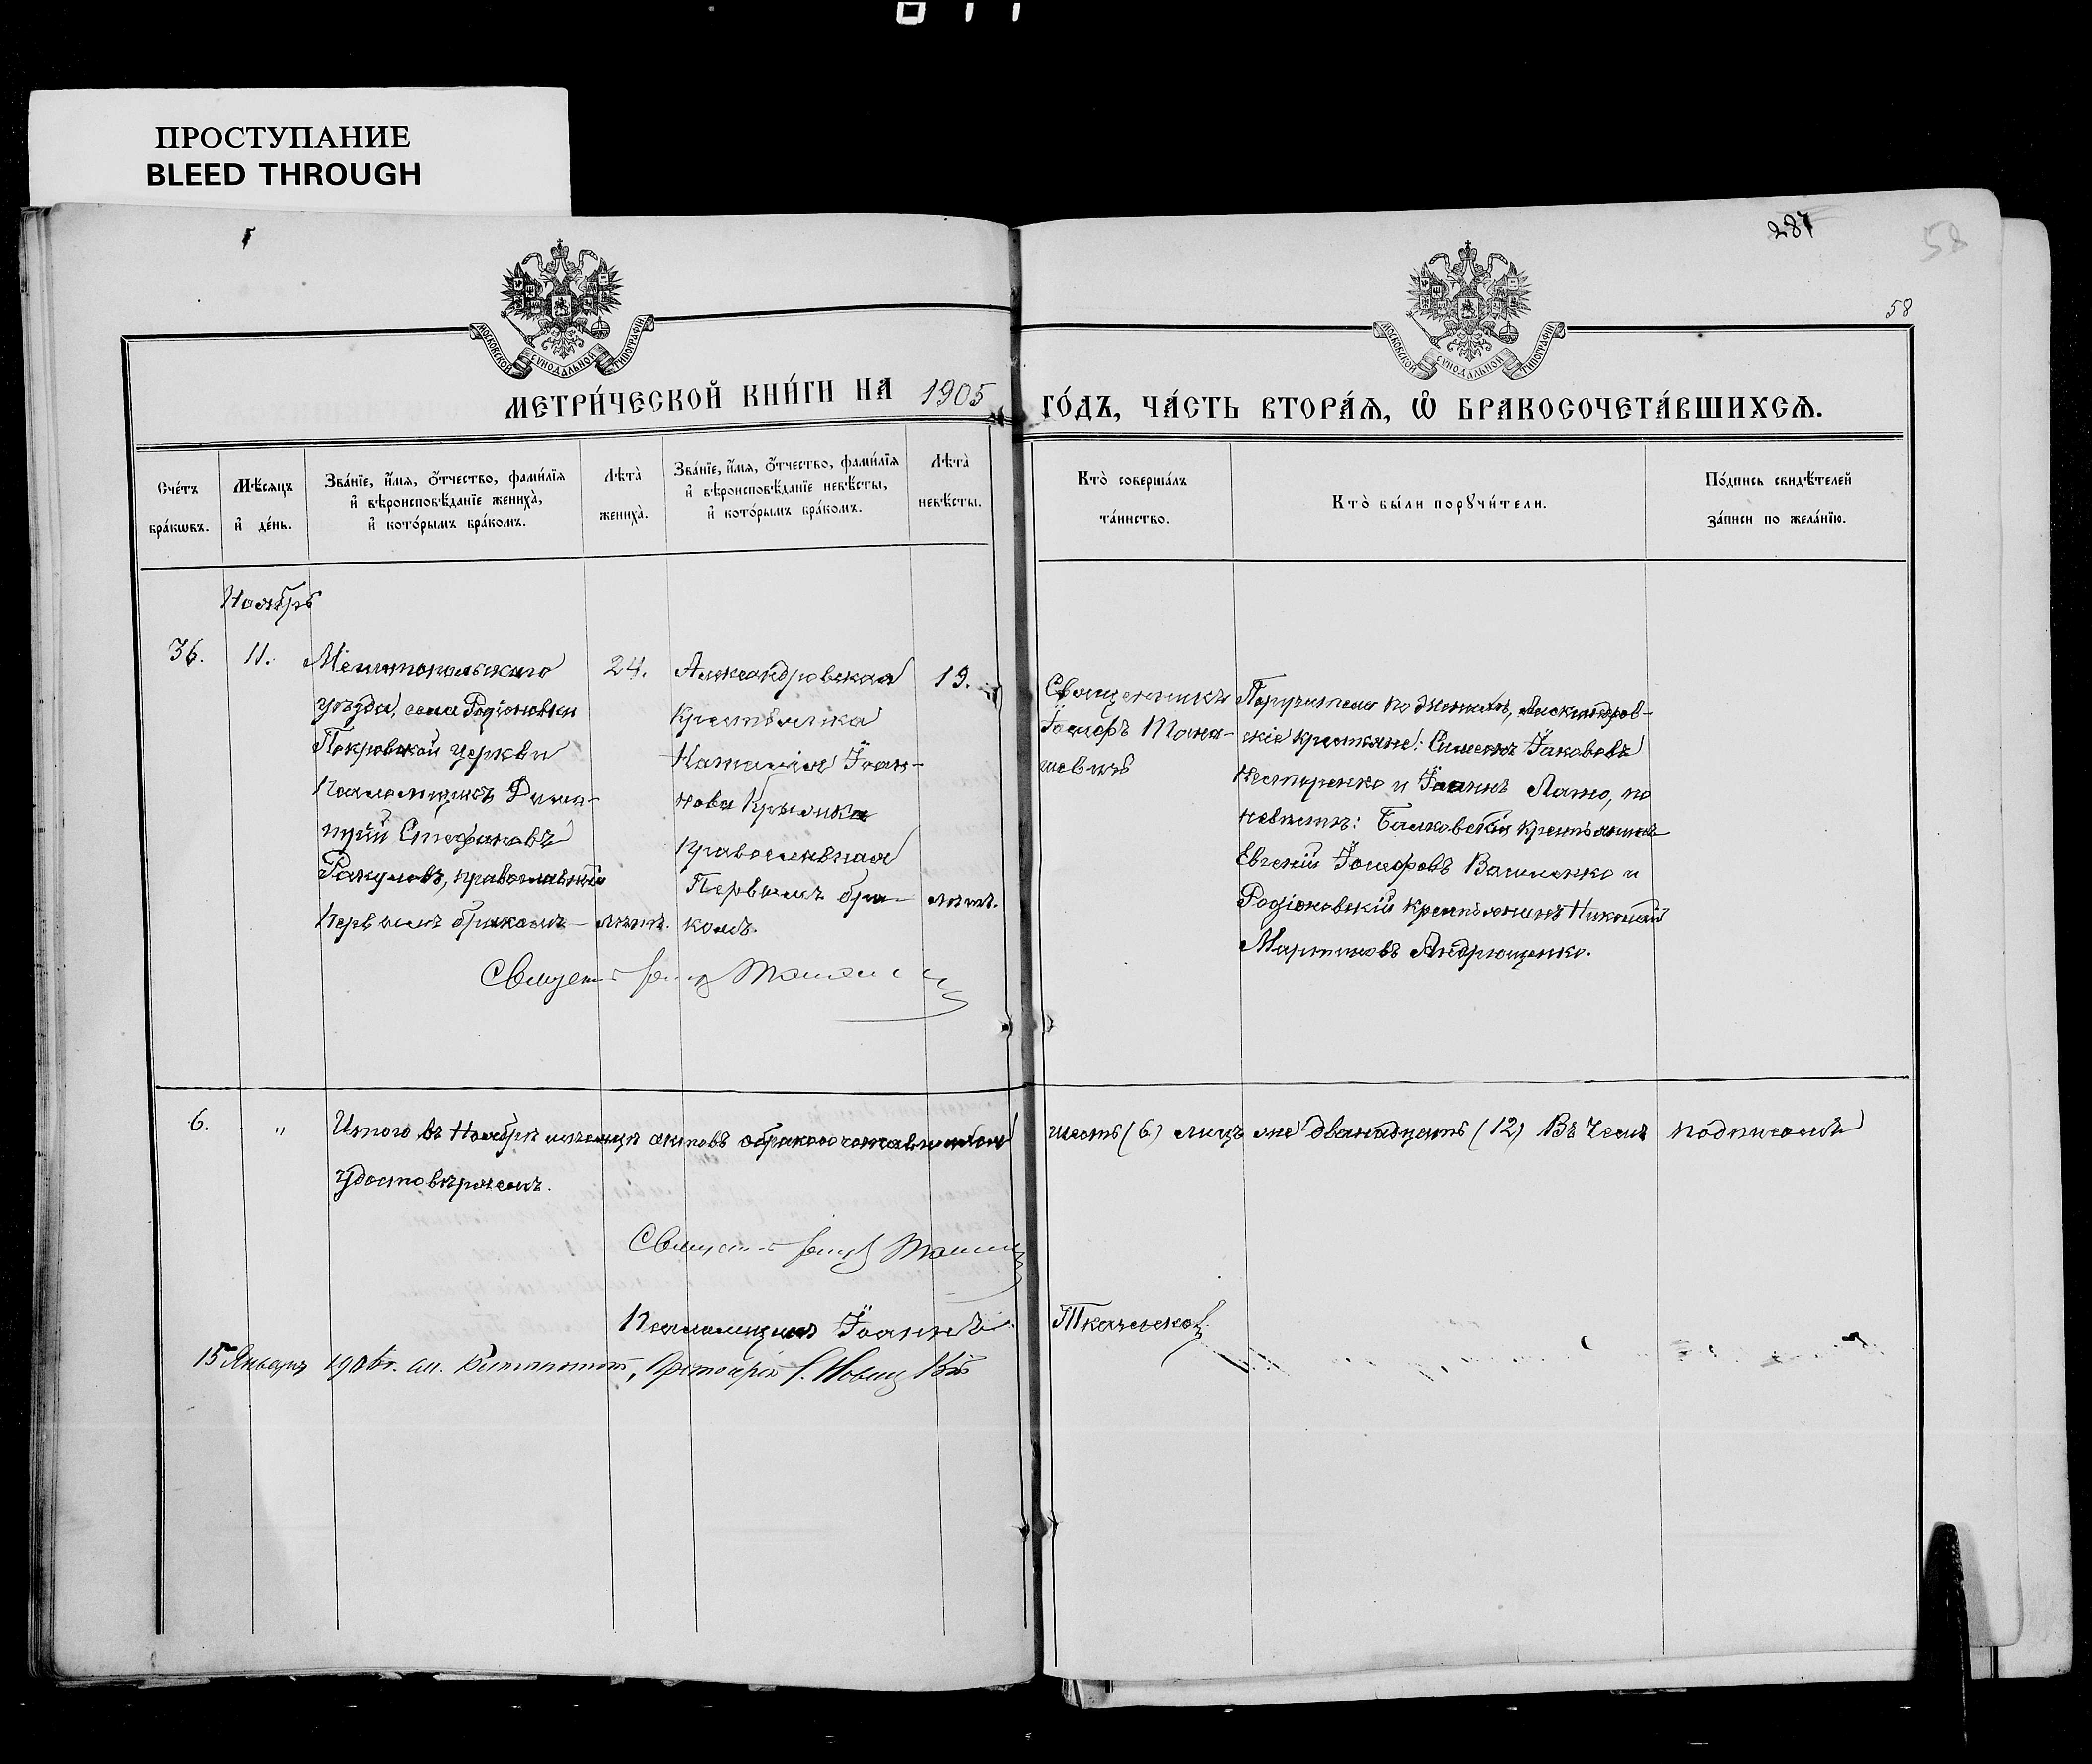 ПРОСТУПАНИЕ
BLEED THROUGH
287
58
58
МОСКОВСКОЙ СѴНОДАЛЬНОЙ ТИПОГРАФІИ
МОСКОВСКОЙ СѴНОДАЛЬНОЙ ТИПОГРАФІИ
МЕТРИ́ЧЕСКОЙ КНИ́ГИ НА 1905 ГО́ДЪ, ЧА́СТЬ ВТОРА́Я, Ѡ БРАКОСОЧЕТА́ВШИХСЯ.
Сче́тъ
бра́кѡвъ.
Мѣ́сяцъ
и҆ де́нь.
Зва́нїе, и҆́мя, ѻ҆́тчество, фами́лїя
и҆ вѣроисповѣ́данїе жениха̀,
и҆ кото́рымъ бра́комъ.
Лѣта̀
жениха̀.
Зва́нїе, и҆́мя, ѻ҆́тчество, фами́лїя
и҆ вѣроисповѣ́данїе невѣ́сты,
и҆ кото́рымъ бра́комъ.
Лѣта̀
невѣ́сты.
Кто̀ соверша́лъ
та́инство.
Кто̀ бы́ли порꙋчи́тели.
По́дпись свидѣ́телей
за́писи по жела́нїю.
Ноябрь
36.
11.
Мелитопольскаго
уѣзда, села Родіоновки
Покровской церкви
Псаломщикъ Дими-
трій Стефановъ
православный
первымъ бракомъ
24.
лѣтъ.
Александровская
Крестьянка
Наталія Іоан-
нова
православная
Первымъ бра-
комъ.
19.
лѣтъ.
Священникъ
Іосифъ Тома-
шевичъ
Поручители по женихѣ, Александров-
скіе крестьяне: Симеонъ Іакововъ
Нестеренко и Іоаннъ Лата, по
невѣстѣ: крестьянинъ
Евгеній Іосифовъ Василенко и
Родіоновскій крестьянинъ Николай
Мартиновъ Андрющенко.
6.
"
Итого въ Ноябрѣ мѣсяцѣ актовъ о бракосочетавшихся шесть (6) лицъ же двѣнадцать (12) Въ чемъ подписомъ
"
удостовѣряемъ.
Псаломщикъ Іоаннъ Ткаченко
15 Января 1906 г.